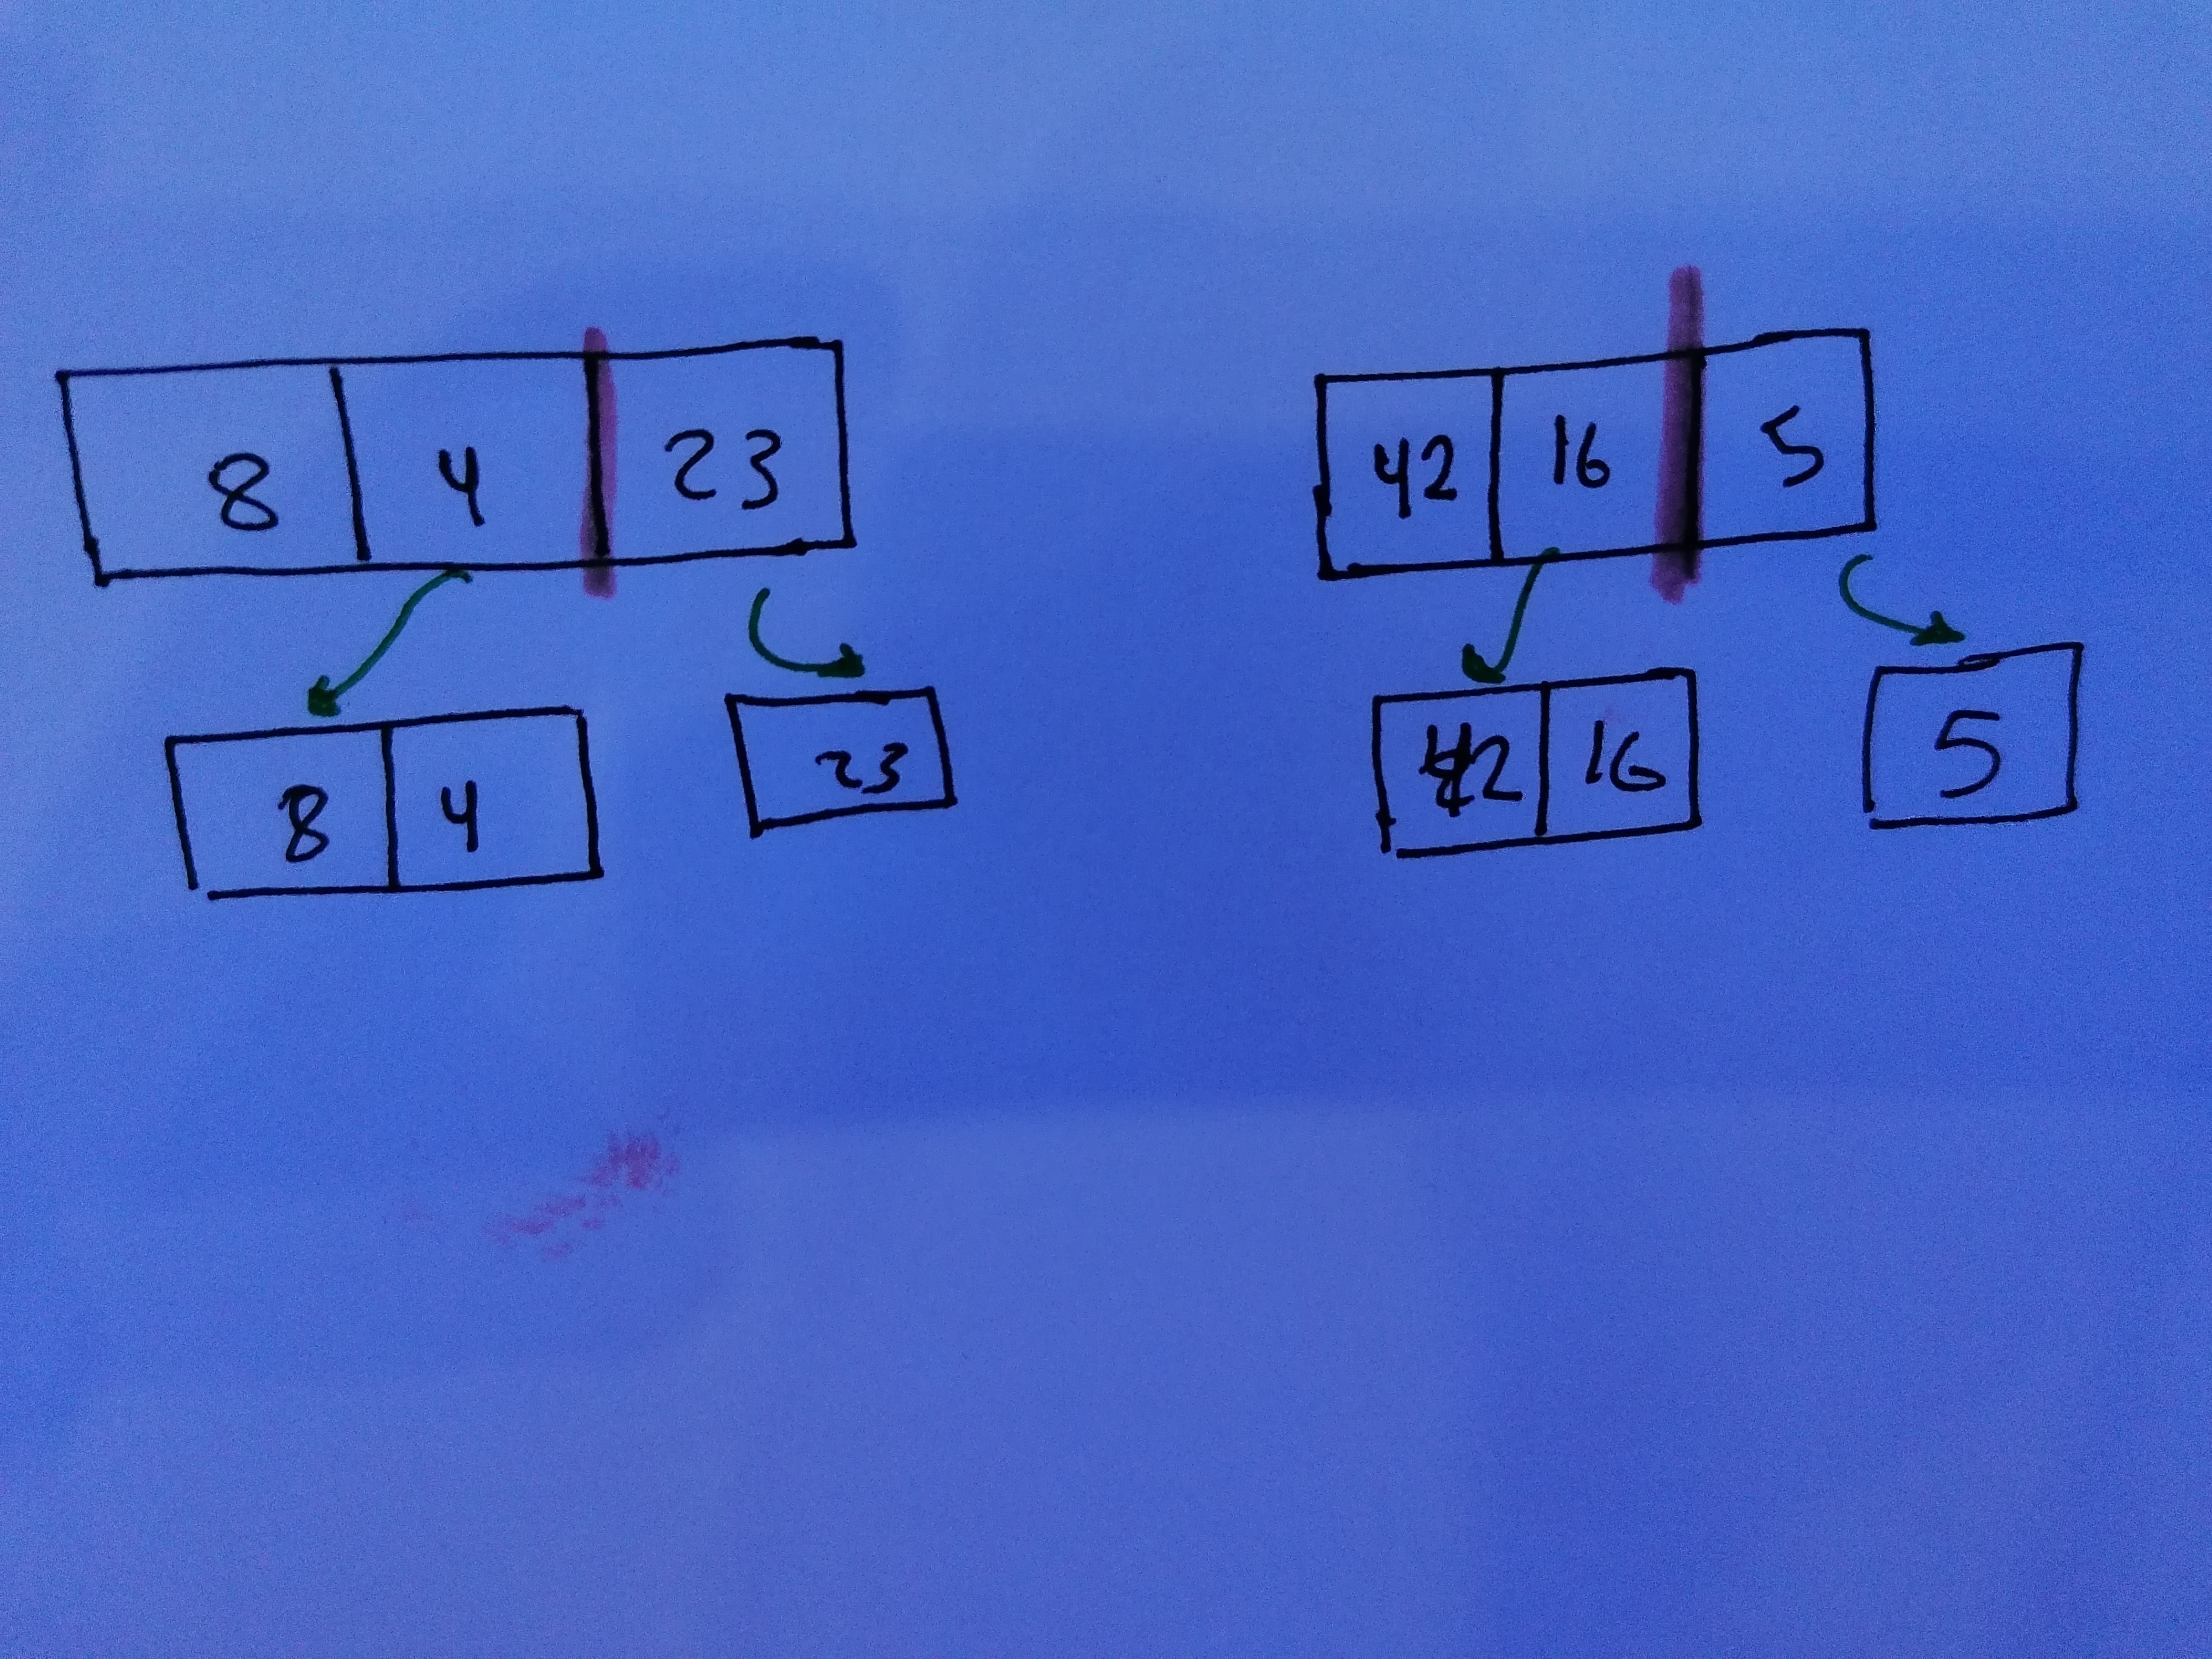 8 4 23 42 16 5
8 4 23 42 16 5